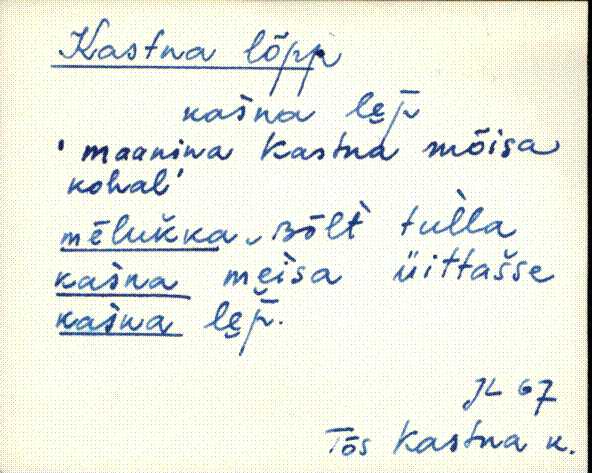 Kastna lõpp
kašna lep̄
' maanina Kastna mõisa
kohal'
mēlukka, Bōlt tulla
kašna meisa üittašse
kašna lep̄.
JL 67
Tõs Kastna k.